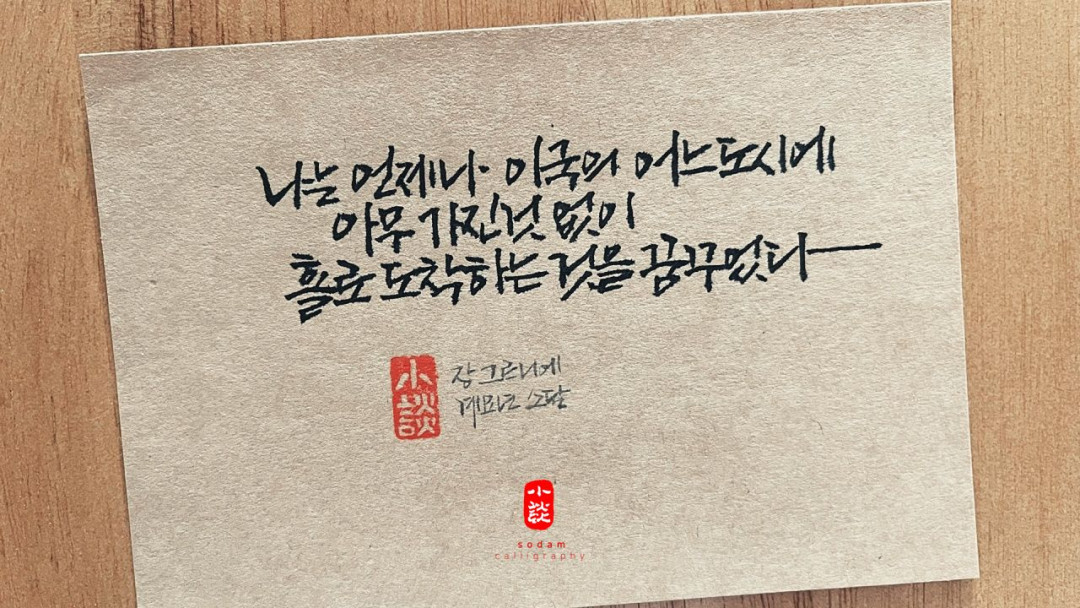 나는 언제나 이국의 어느 도시에
아무 가진것 없이
홀로 도착하는 것을 꿈꾸었다
小談
장 그르니에
소담
小談
sodam
calligraphy